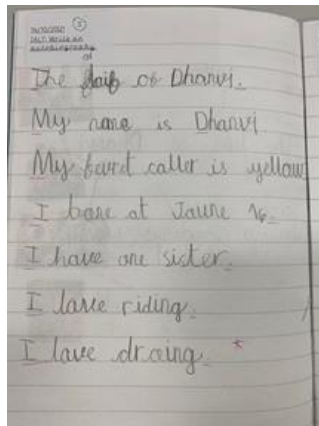 LO: Write an
autobiography
The of Dhanvi.
My name is Dhanvi
My favret caller is yellow
I bone at Jaune 16.
I have one sister.
I lave riding.
I lave droing.